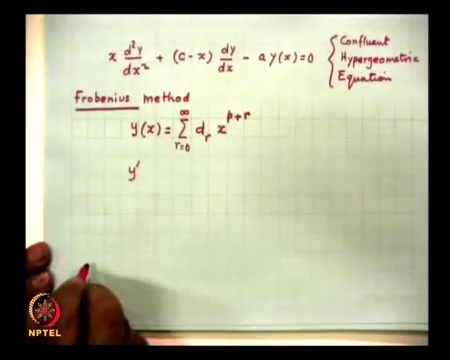 x d²y/dx² + (c - x) dy/dx - a y(x) = 0 { Confluent
Hypergeometric
Equation
Frobenius method
y(x) = ∑_{r=0}^{∞} d_r x^{p+r}
y'
NPTEL